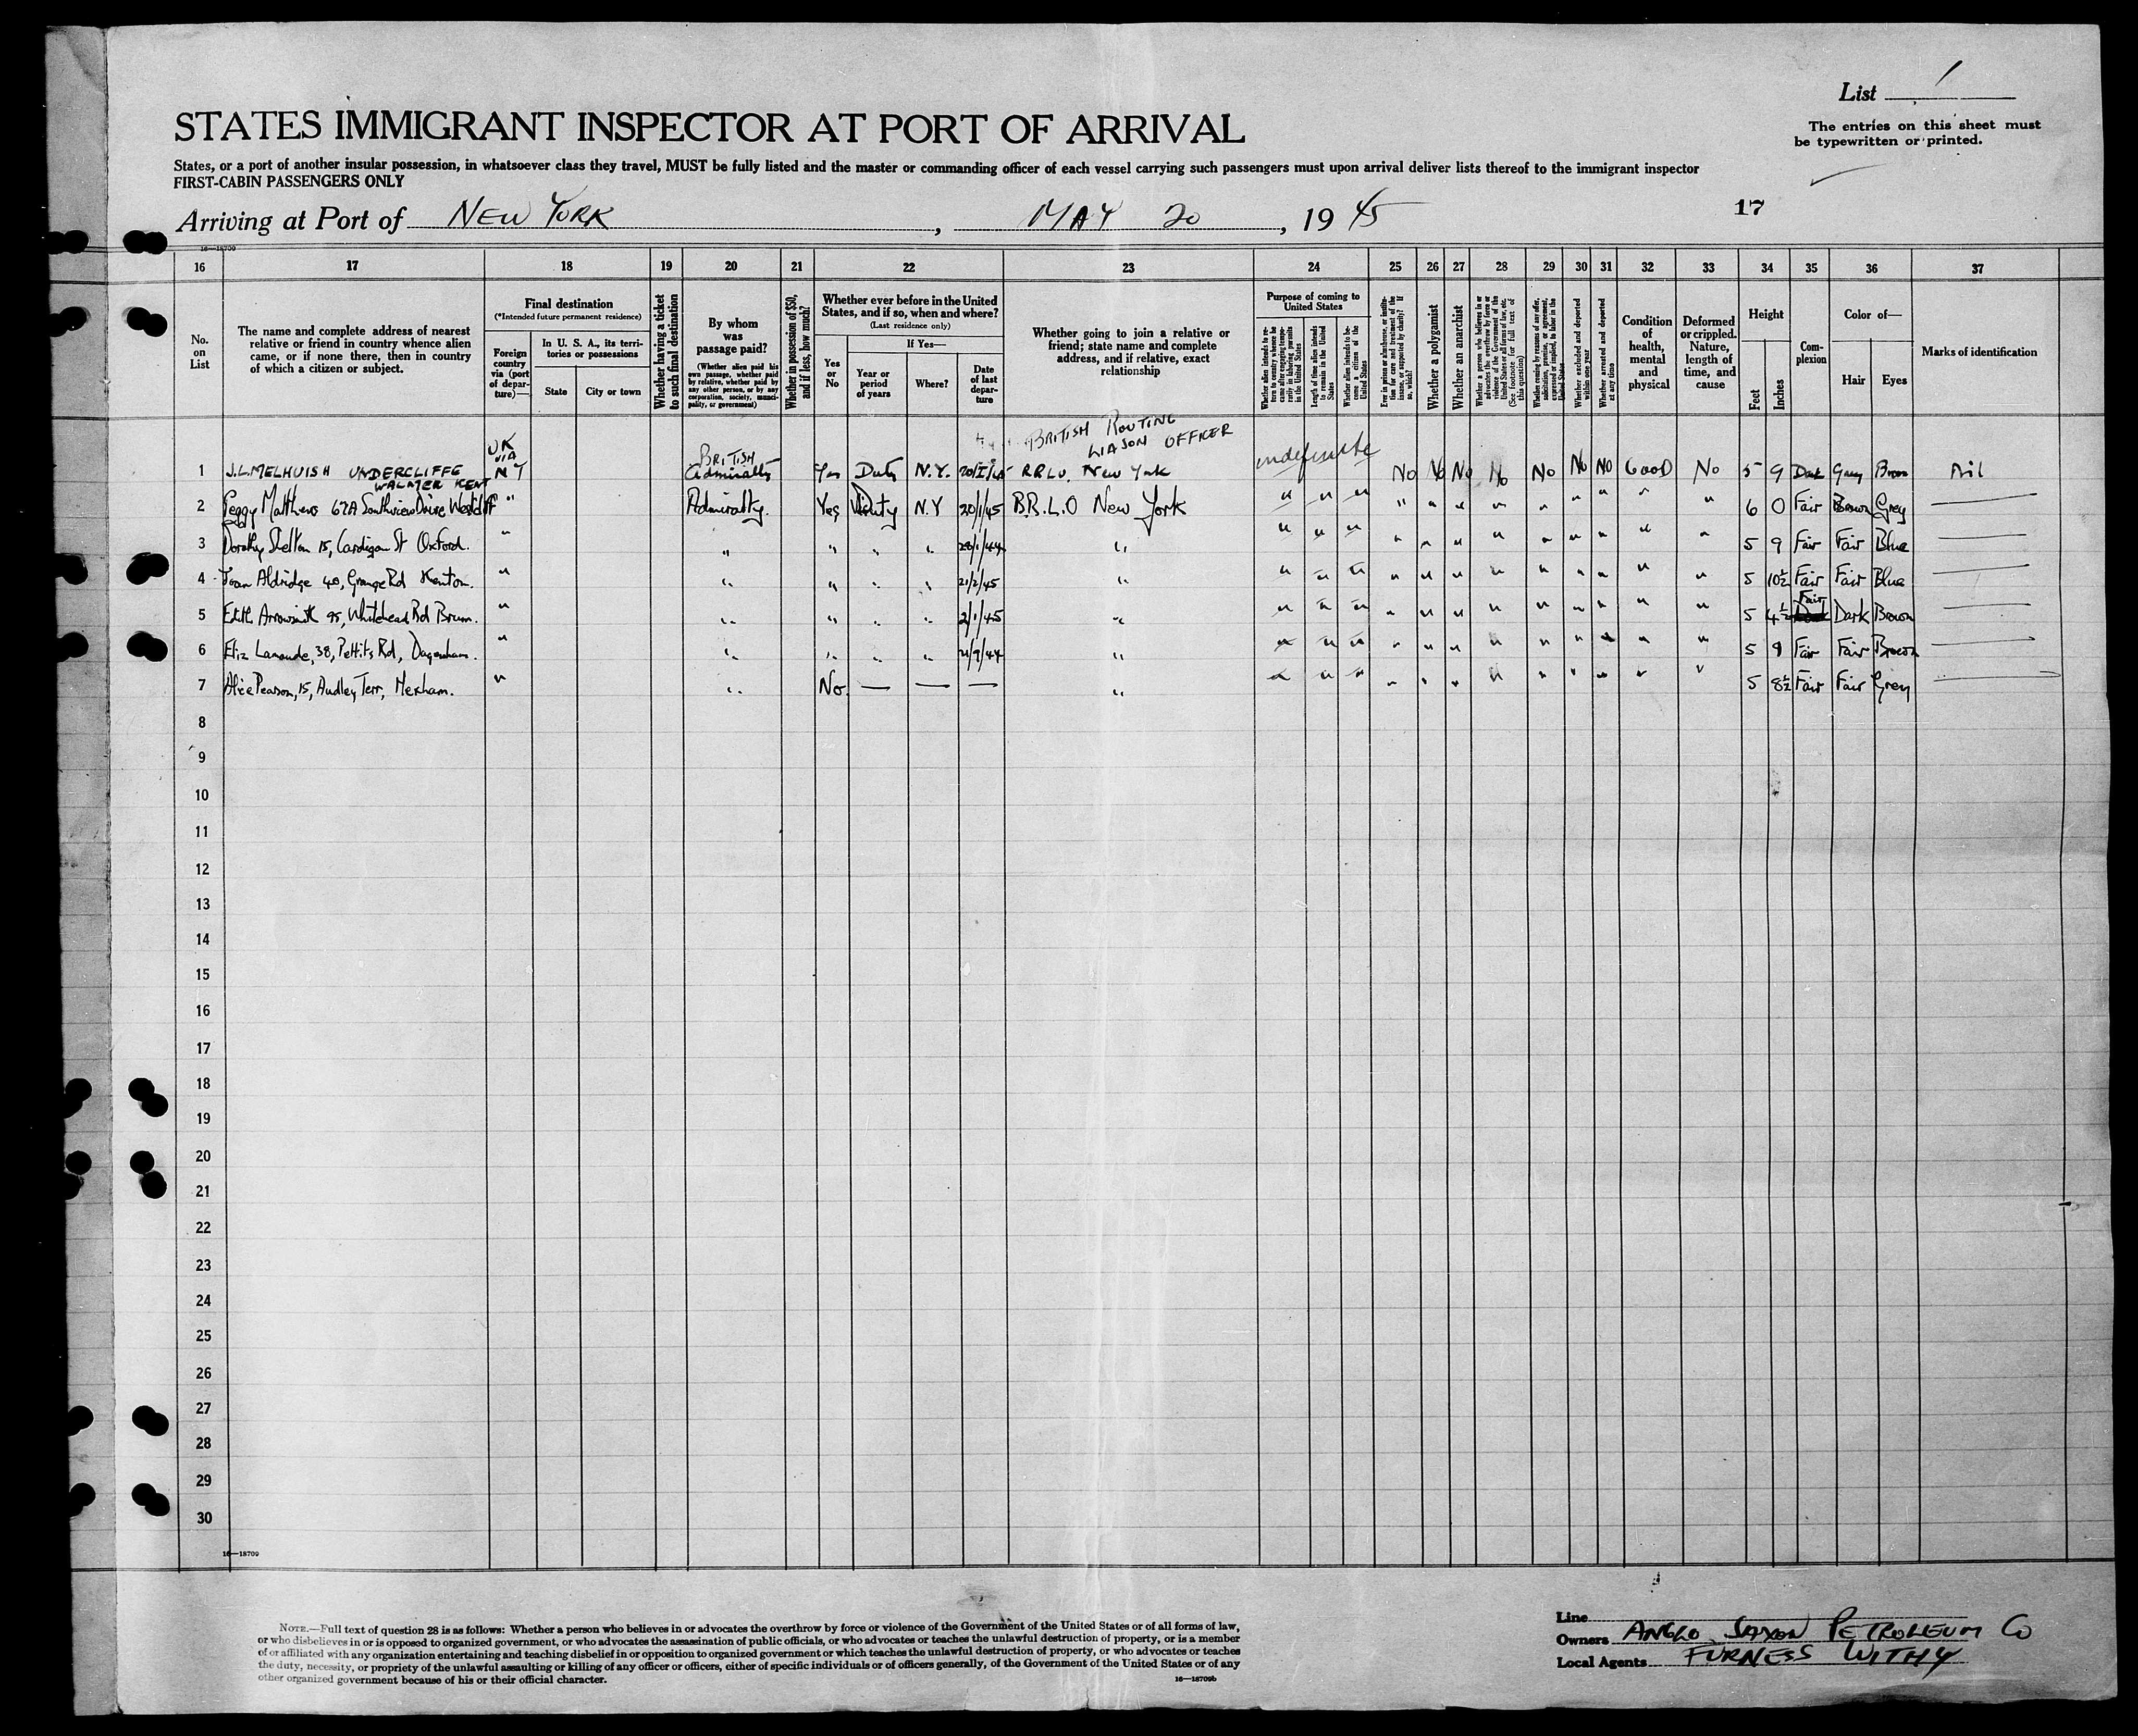 List 1
STATES IMMIGRANT INSPECTOR AT PORT OF ARRIVAL
The entries on this sheet must
be typewritten or printed.
States, or a port of another insular possession, in whatsoever class they travel, MUST be fully listed and the master or commanding officer of each vessel carrying such passengers must upon arrival deliver lists thereof to the immigrant inspector
FIRST-CABIN PASSENGERS ONLY
Arriving at Port of NEW YORK, MAY 20, 1945
17
16—18709
16 17 18 19 20 21 22 23 24 25 26 27 28 29 30 31 32 33 34 35 36 37
No. on List
The name and complete address of nearest relative or friend in country whence alien came, or if none there, then in country of which a citizen or subject.
Final destination
(*Intended future permanent residence)
Foreign country via (port of departure)—
In U. S. A., its territories or possessions
State
City or town
Whether having a ticket to such final destination
By whom was passage paid?
(Whether alien paid his own passage, whether paid by relative, whether paid by any other person, or by any corporation, society, municipality, or government)
Whether in possession of $50, and if less, how much?
Whether ever before in the United States, and if so, when and where?
(Last residence only)
Yes or No
If Yes—
Year or period of years
Where?
Date of last departure
Whether going to join a relative or friend; state name and complete address, and if relative, exact relationship
Purpose of coming to United States
Whether alien intends to return to country whence he came after engaging temporarily in laboring pursuits in the United States
Length of time alien intends to remain in the United States
Whether alien intends to become a citizen of the United States
Ever in prison or almshouse, or institution for care and treatment of the insane, or supported by charity? If so, which?
Whether a polygamist
Whether an anarchist
Whether a person who believes in or advocates the overthrow by force or violence of the Government of the United States or all forms of law, etc. (See footnote for full text of this question)
Whether coming by reasons of any offer, solicitation, promise, or agreement, expressed or implied, to labor in the United States
Whether excluded and deported within one year
Whether arrested and deported at any time
Condition of health, mental and physical
Deformed or crippled. Nature, length of time, and cause
Height
Feet
Inches
Complexion
Color of—
Hair
Eyes
Marks of identification
BRITISH ROUTING
LIASON OFFICER
1 J.L. MELHUISH UNDERCLIFFE WALMER KENT UK VIA NY BRITISH Admiralty Yes Duty N.Y. New York indefinite No No No No No No No GOOD No 5 9 Dark Grey Brown Nil
2 Peggy Matthews 67A Southview Drive Westcliff " Admiralty. Yes Duty N.Y 20/1/45 B.R.L.O New York " " " " " " " " " " " " 6 0 Fair Brown Grey —
3 Dorothy Shelton 15, Cardigan St Oxford. " " " " " 28/1/44 " " " " " " " " " " " " " 5 9 Fair Fair Blue —
4 Joan Aldridge 40, Grange Rd Kenton. " " " " " 21/2/45 " " " " " " " " " " " " " 5 10½ Fair Fair Blue —
5 Edith Arrowsmith 95, Whitehead Rd Brum. " " " " " 2/1/45 " " " " " " " " " " " " " 5 4½ Fair Dark Brown —
6 Eliz 38, Pettits Rd, Dagenham. " " " " " /9/44 " " " " " " " " " " " " " 5 9 Fair Fair Brown —
7 Alice Pearson, 15, Audley Terr, Hexham. " " No. — — — " " " " " " " " " " " " " 5 8½ Fair Fair Grey —
8
9
10
11
12
13
14
15
16
17
18
19
20
21
22
23
24
25
26
27
28
29
30
16—18709
NOTE.—Full text of question 28 is as follows: Whether a person who believes in or advocates the overthrow by force or violence of the Government of the United States or of all forms of law,
or who disbelieves in or is opposed to organized government, or who advocates the assassination of public officials, or who advocates or teaches the unlawful destruction of property, or is a member
of or affiliated with any organization entertaining and teaching disbelief in or opposition to organized government or which teaches the unlawful destruction of property, or who advocates or teaches
the duty, necessity, or propriety of the unlawful assaulting or killing of any officer or officers, either of specific individuals or of officers generally, of the Government of the United States or of any
other organized government because of his or their official character.
16—18709b
Line
Owners ANGLO SAXON PETROLEUM Co
Local Agents FURNESS WITHY